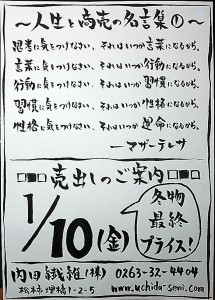 ～人生と商売の名言集①～
思考に気をつけなさい、それはいつか言葉になるから。
言葉に気をつけなさい、それはいつか行動になるから。
行動に気をつけなさい、それはいつか習慣になるから。
習慣に気をつけなさい、それはいつか性格になるから。
性格に気をつけなさい、それはいつか運命になるから。
―マザーテレサ
□■□売出しのご案内□■□
1/10(金)
冬物
最終
プライス!
内田繊維(株) 0263-32-4404
松本市埋橋1-2-5 www.uchida-seni.com